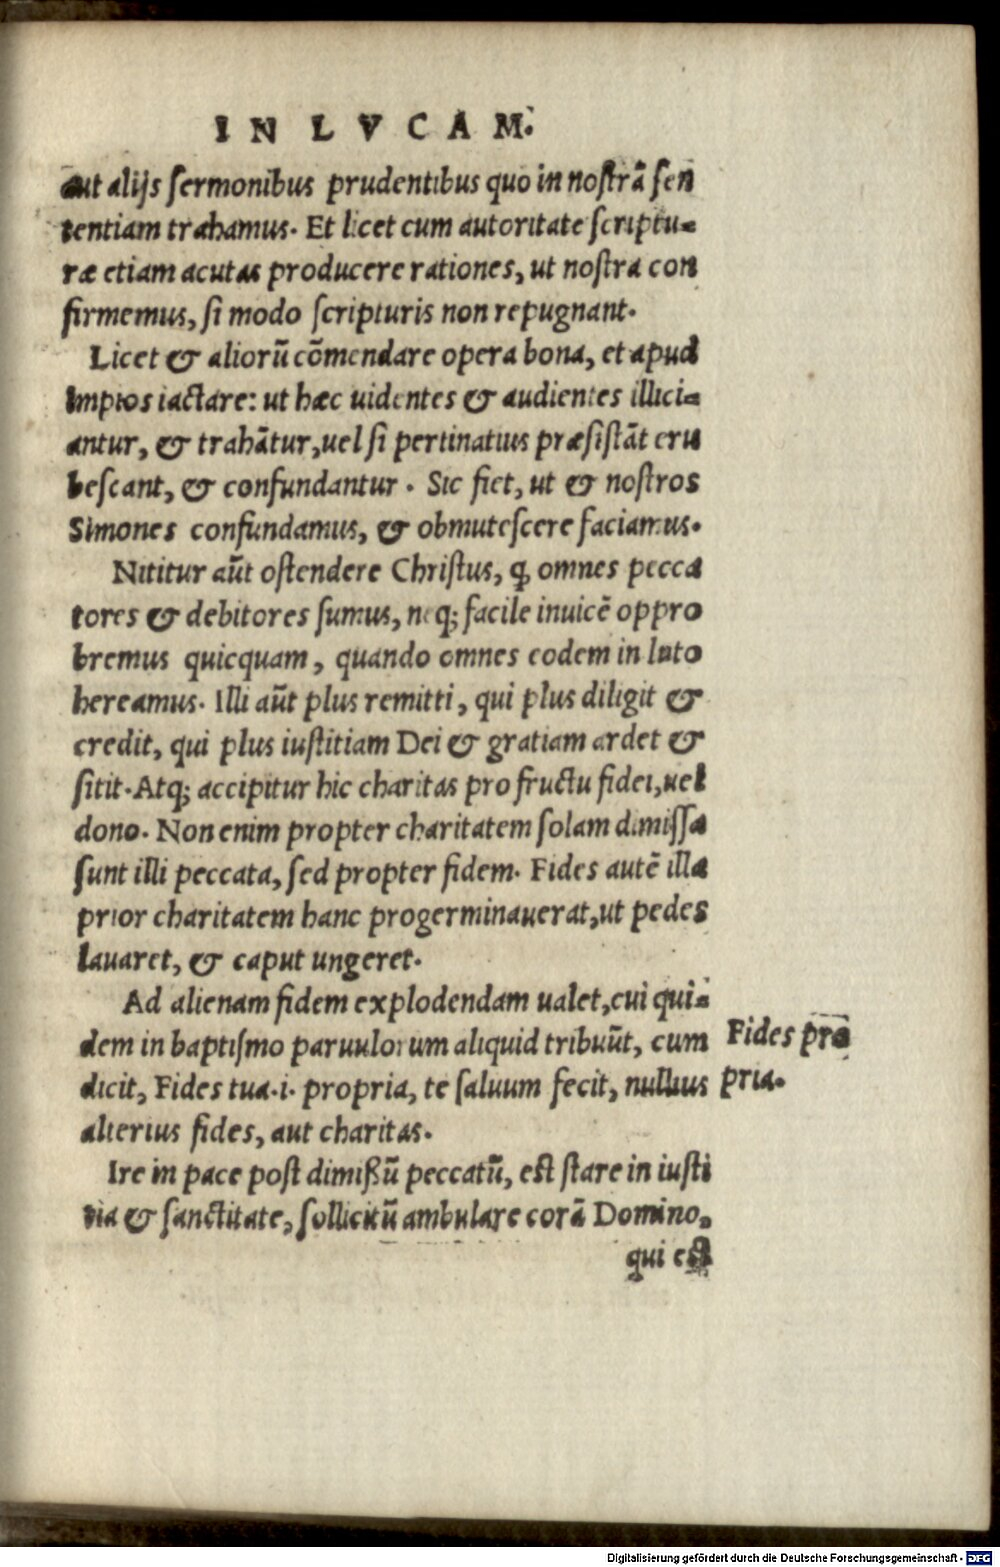 IN LVCAM.
aut alijs sermonibus prudentibus quo in nostrã sen
tentiam trahamus. Et licet cum autoritate scriptu-
ræ etiam acutas producere rationes, ut nostra con
firmemus, si modo scripturis non repugnant.
Licet & aliorũ cõmendare opera bona, et apud
Impios iactare: ut hæc uidentes & audientes illici-
antur, & trahãtur, uel si pertinatius præsistãt eru
bescant, & confundantur. Sic fiet, ut & nostros
Simones confundamus, & obmutescere faciamus.
Nititur aũt ostendere Christus, ꝙ omnes pecca
tores & debitores sumus, neq; facile inuicẽ oppro
bremus quicquam, quando omnes eodem in luto
hereamus. Illi aũt plus remitti, qui plus diligit &
credit, qui plus iustitiam Dei & gratiam ardet &
sitit. Atq; accipitur hic charitas pro fructu fidei, uel
dono. Non enim propter charitatem solam dimissa
sunt illi peccata, sed propter fidem. Fides autẽ illa
prior charitatem hanc progerminauerat, ut pedes
lauaret, & caput ungeret.
Ad alienam fidem explodendam ualet, cui qui-
dem in baptismo paruulorum aliquid tribuũt, cum
dicit, Fides tua .i. propria, te saluum fecit, nullius
alterius fides, aut charitas.
Fides pro
pria.
Ire in pace post dimißũ peccatũ, est stare in iusti
tia & sanctitate, sollicitũ ambulare corã Domino,
qui est
Digitalisierung gefördert durch die Deutsche Forschungsgemeinschaft - DFG